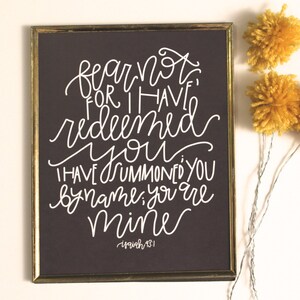 fear not,
FOR I HAVE
redeemed
you
I HAVE SUMMONED YOU
by name; you are
mine
isaiah 43:1